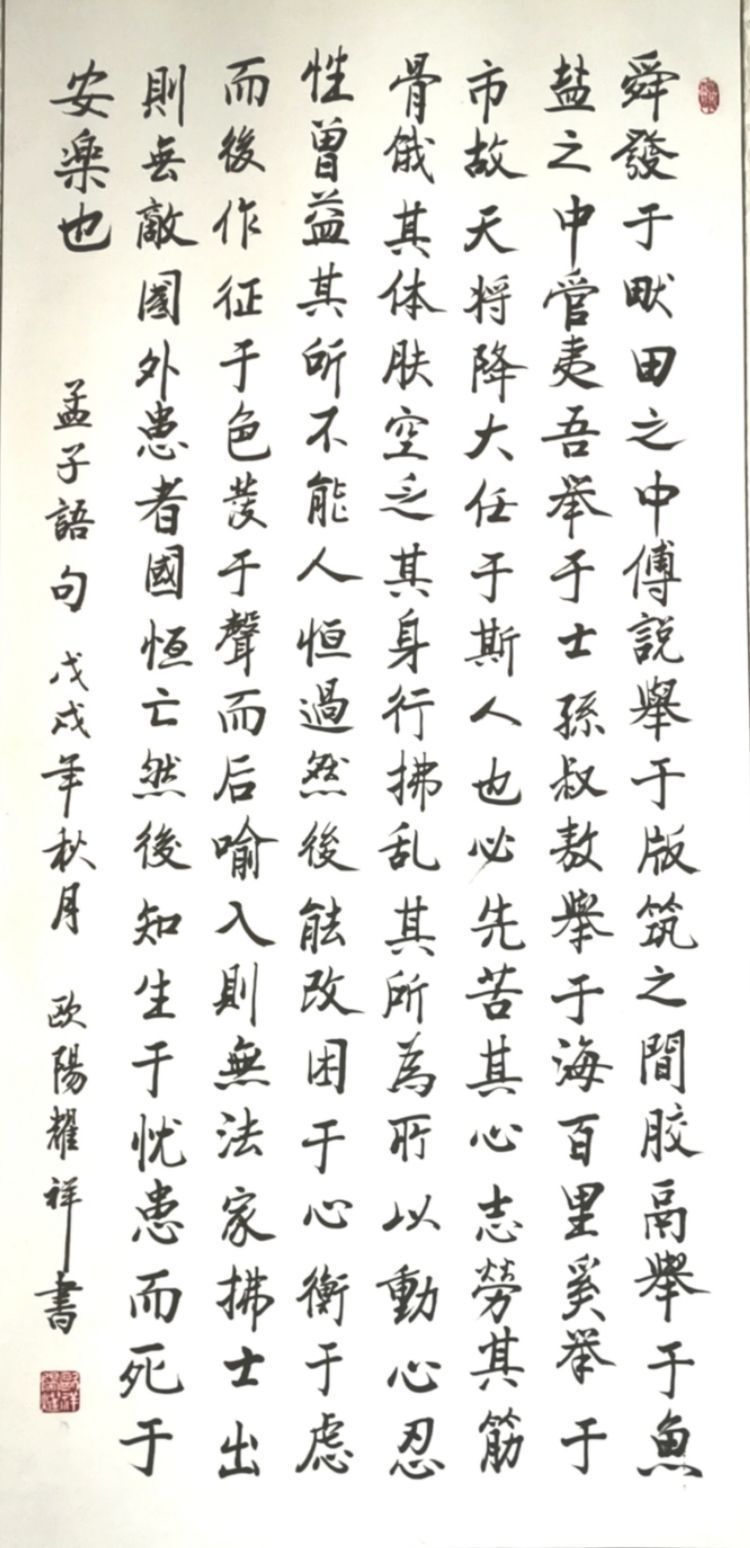 舜發于畎田之中傅説舉于版筑之間胶鬲舉于魚
盐之中管夷吾举于士孫叔敖舉于海百里奚举于
市故天将降大任于斯人也必先苦其心志劳其筋
骨餓其体肤空乏其身行拂乱其所為所以動心忍
性曾益其所不能人恒過然後能改困于心衡于虑
而後作征于色发于聲而后喻入則無法家拂士出
則无敵國外患者國恒亡然後知生于忧患而死于
安楽也
孟子語句 戊戌年秋月 欧陽耀祥書